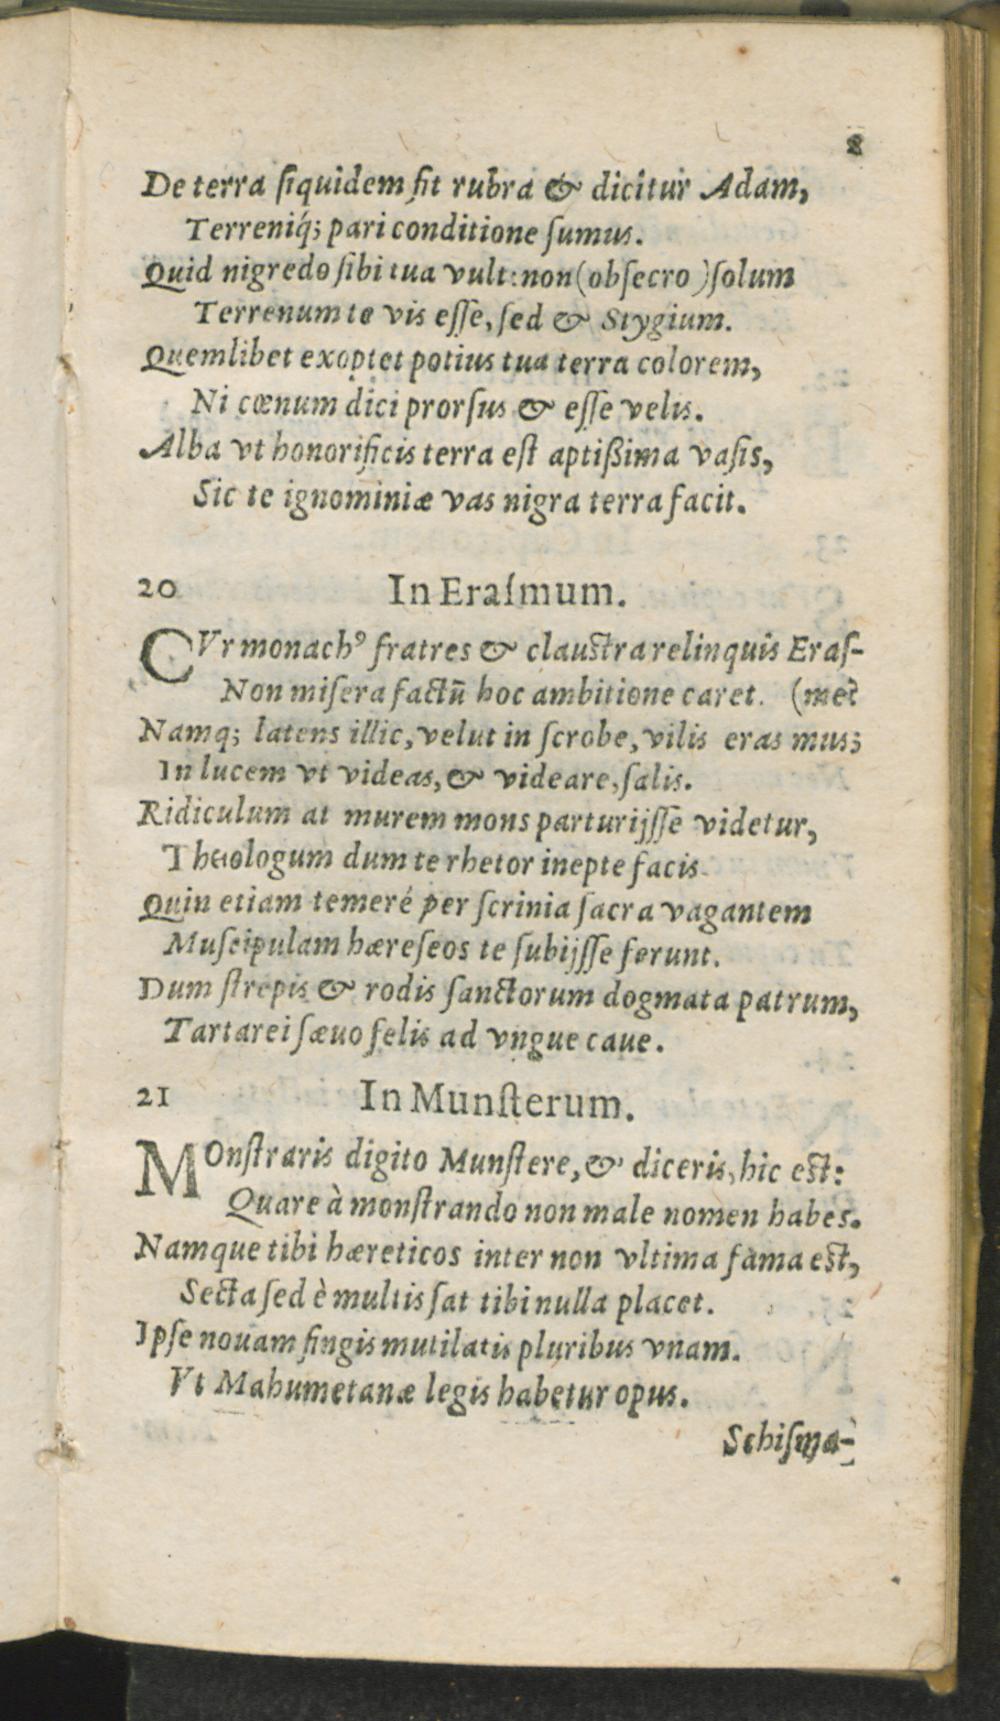 8
De terra ſiquidem fit rubra & dicitur Adam,
Terreniq́; pari conditione ſumus.
Quid nigredo ſibi tua vult: non (obſecro) ſolum
Terrenum te vis eſſe, ſed & Stygium.
Quemlibet exoptet potius tua terra colorem,
Ni cœnum dici prorſus & eſſe velis.
Alba vt honorificis terra eſt aptißima vaſis,
Sic te ignominiæ vas nigra terra facit.
20 In Eraſmum.
CVr monachꝰ fratres & clauſtra relinquis Eraſ-
Non miſera factū hoc ambitione caret. (me?
Namq; latens illic, velut in ſcrobe, vilis eras mus;
In lucem vt videas, & videare, ſalis.
Ridiculum at murem mons parturijſſe videtur,
Theologum dum te rhetor inepte facis.
Quin etiam temeré per ſcrinia ſacra vagantem
Muſcipulam hæreſeos te ſubijſſe ferunt.
Dum ſtrepis & rodis ſanctorum dogmata patrum,
Tartarei ſæuo felis ad vngue caue.
21 In Munſterum.
MOnſtraris digito Munſtere, & diceris, hic eſt:
Quare à monſtrando non male nomen habes.
Namque tibi hæreticos inter non vltima fama eſt,
Secta ſed è multis ſat tibi nulla placet.
Ipſe nouam fingis mutilatis pluribus vnam.
Vt Mahumetanæ legis habetur opus.
Schiſma-